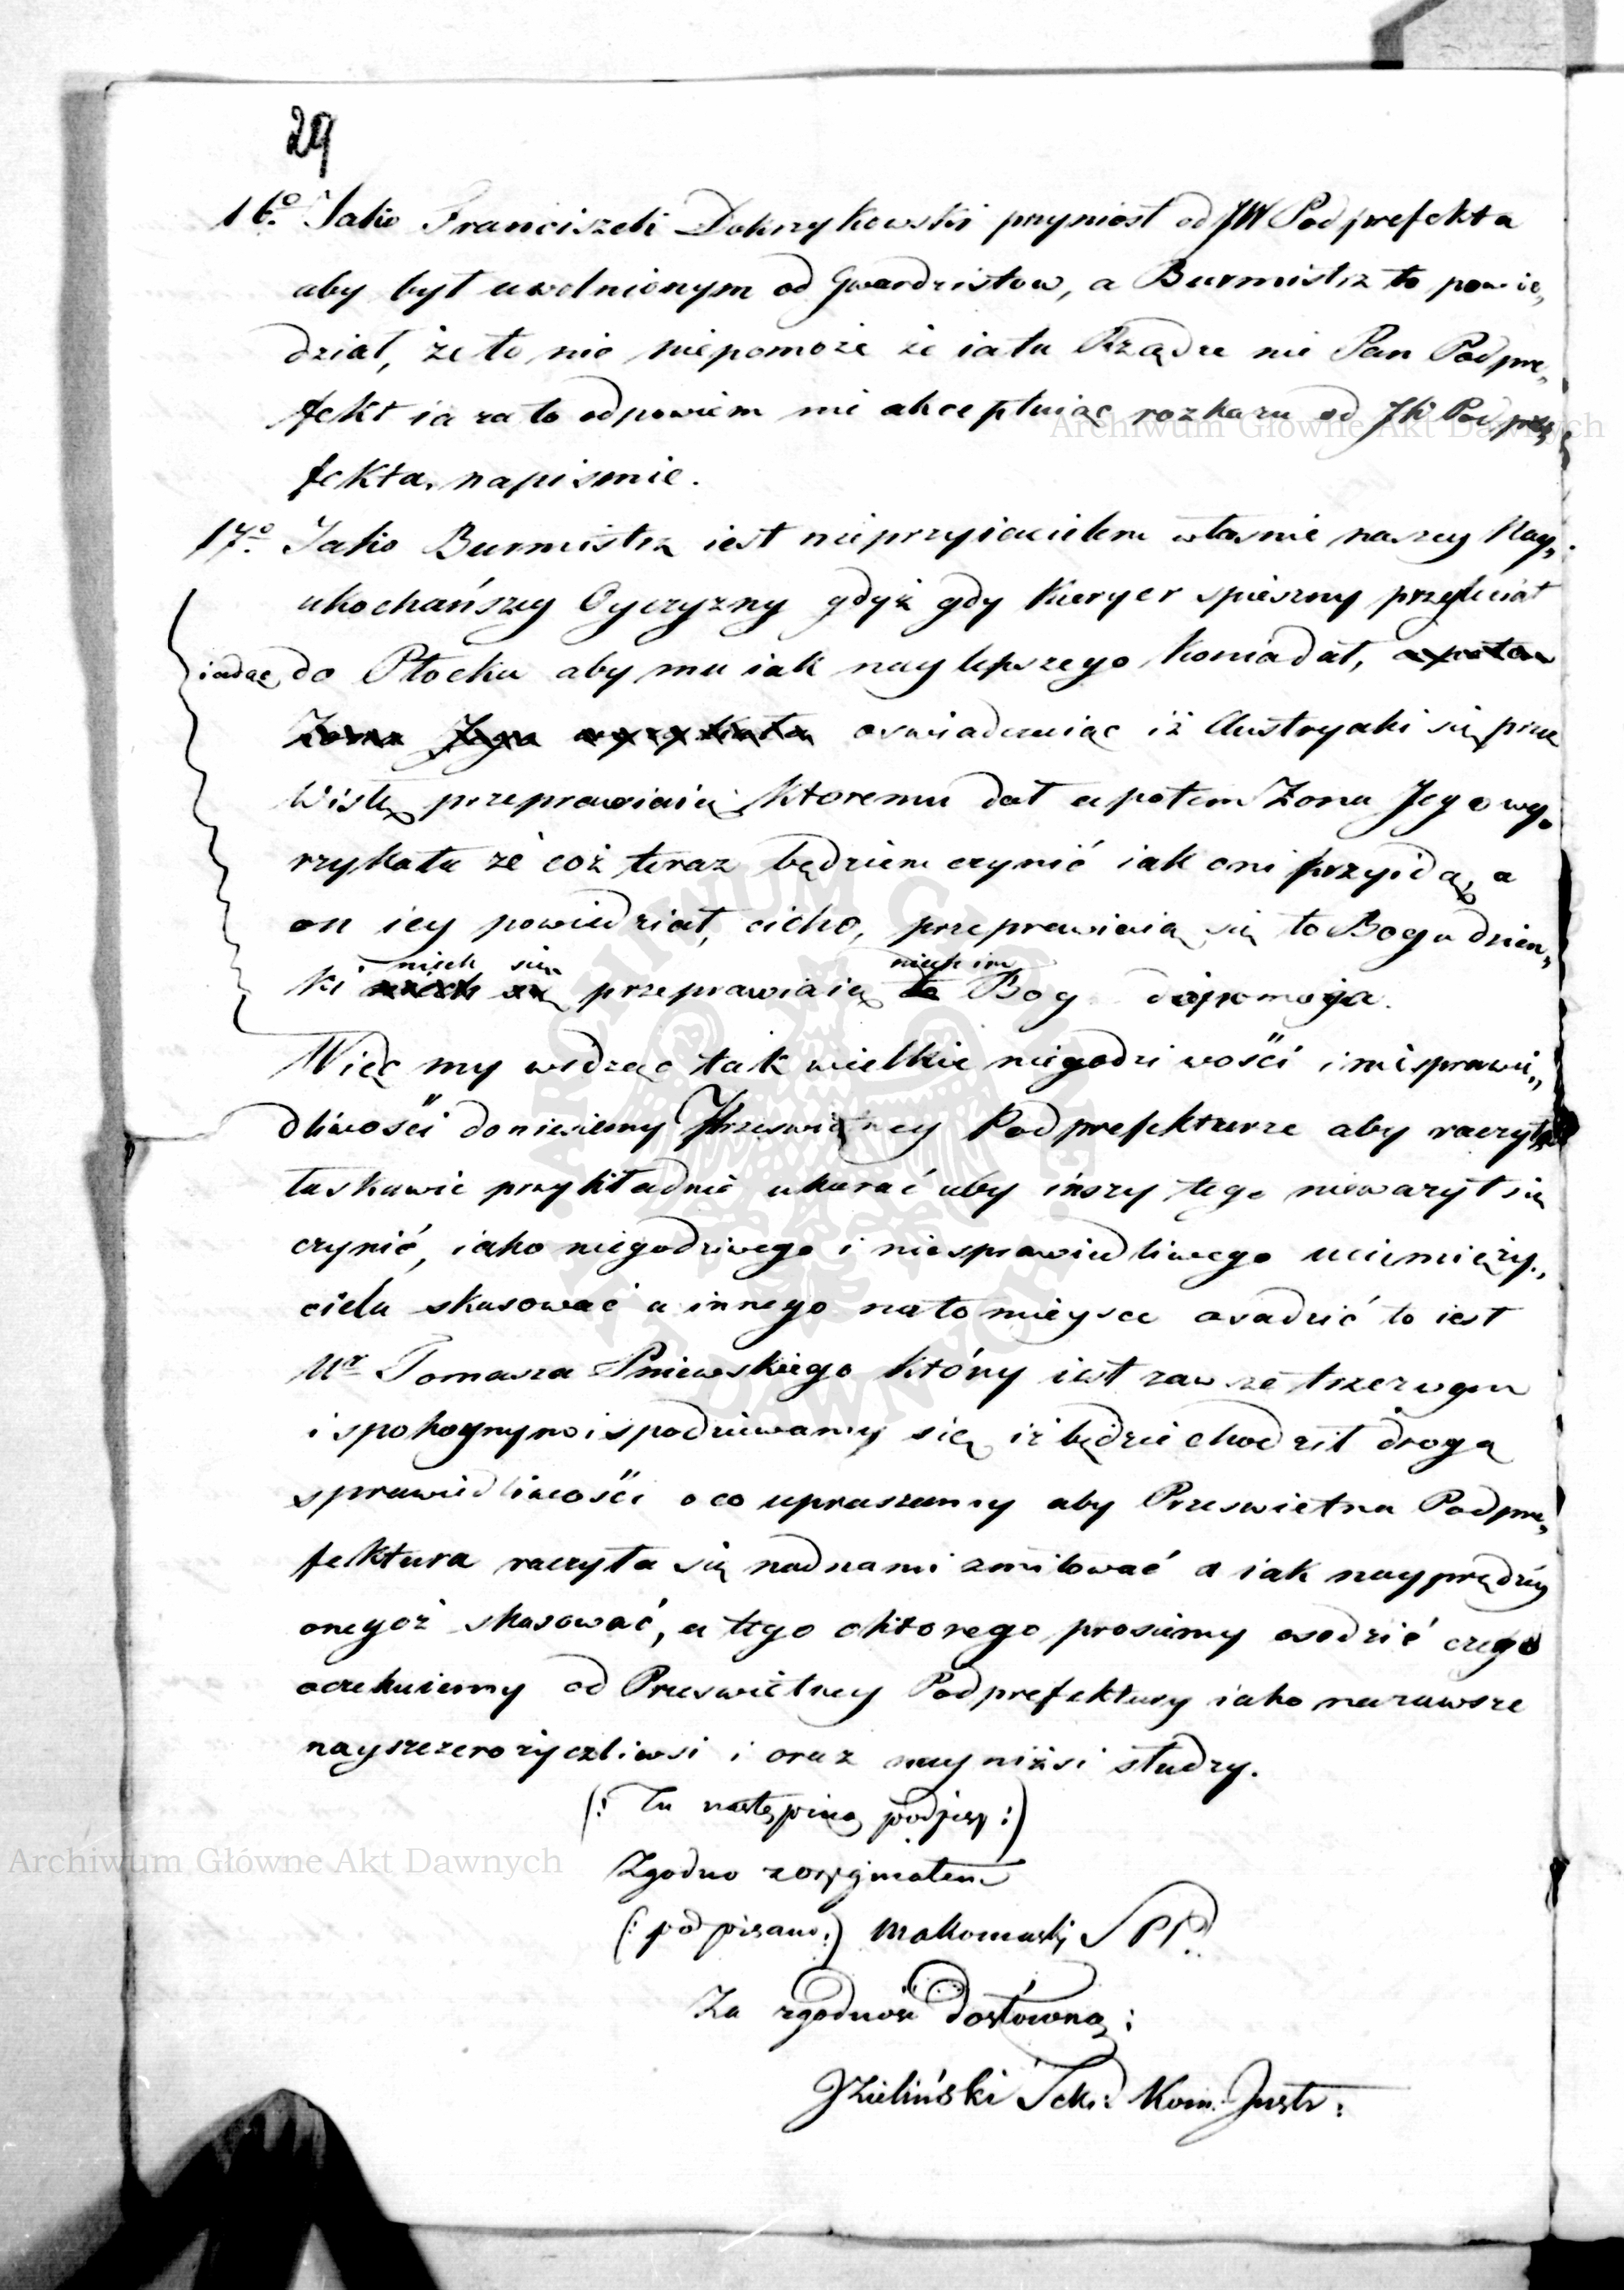 29
16o Jako Franciszek Dobrzykowski przyniosł od JW Podprefekta
aby był uwolnionym od Gwardzistow, a Burmistrz to powie„
dział, że to nic niepomoże że ia tu Rządzę nie Pan Podpre„
fekt ia za to odpowiem nie akceptuiąc rozkazu od JW Podpre„
fekta, napismie.
17o Jako Burmistrz iest nieprzyiacielem własnie naszey Nay„
ukochańszey Oyczyzny gdyż gdy Kuryer spieszny przyleciał
iadąc do Płocka aby mu iak naylepszego konia dał, a potem
Zona Jego wyrzykała oswiadczaiąc iż Austryaki się przez
Wisłę przeprawiaią, ktoremu dał a potem Zona Jego wy„
rzykała że coż teraz będziem czynić iak oni przyidą, a
on iey powiedział, cicho, przeprawiaią się to Bogu dzien„
niech się niech im
ki niech się przeprawiaią to Bog dopomoga.
Więc my widząc tak wielkie niegodziwości i niesprawie„
dliwości doniesiemy Przeswietney Podprefekturze aby raczyła
łaskawie przykładnie ukarać aby inszy tego nieważył się
czynić, iako niegodziwego i niesprawiedliwego uciemięży„
ciela skasować a innego na to mieysce osadzić to iest
Ur Tomasza Pniewskiego który iest zawsze trzezwym
i spokoynym i spodziewamy się iż będzie chodził drogą
sprawiedliwości o co upraszamy aby Przeswietna Podpre„
fektura raczyła się nad nami zmiłować a iak nayprędzey
onegoż skasować, a tego o ktorego prosiemy osadzić czego
oczekuiemy od Przeswietney Podprefektury iako na zawsze
nayszczerozyczliwsi i oraz nayniżsi słudzy.
(: Tu następuią podpisy :)
Zgodno z oryginałem
(: podpisano :) Makomaski SPP.
Za zgodność dosłowną :
JZieliński Sekr: Kom: Justr:
Archiwum Główne Akt Dawnych
Archiwum Główne Akt Dawnych
ARCHIWUM GŁÓWNE AKT DAWNYCH